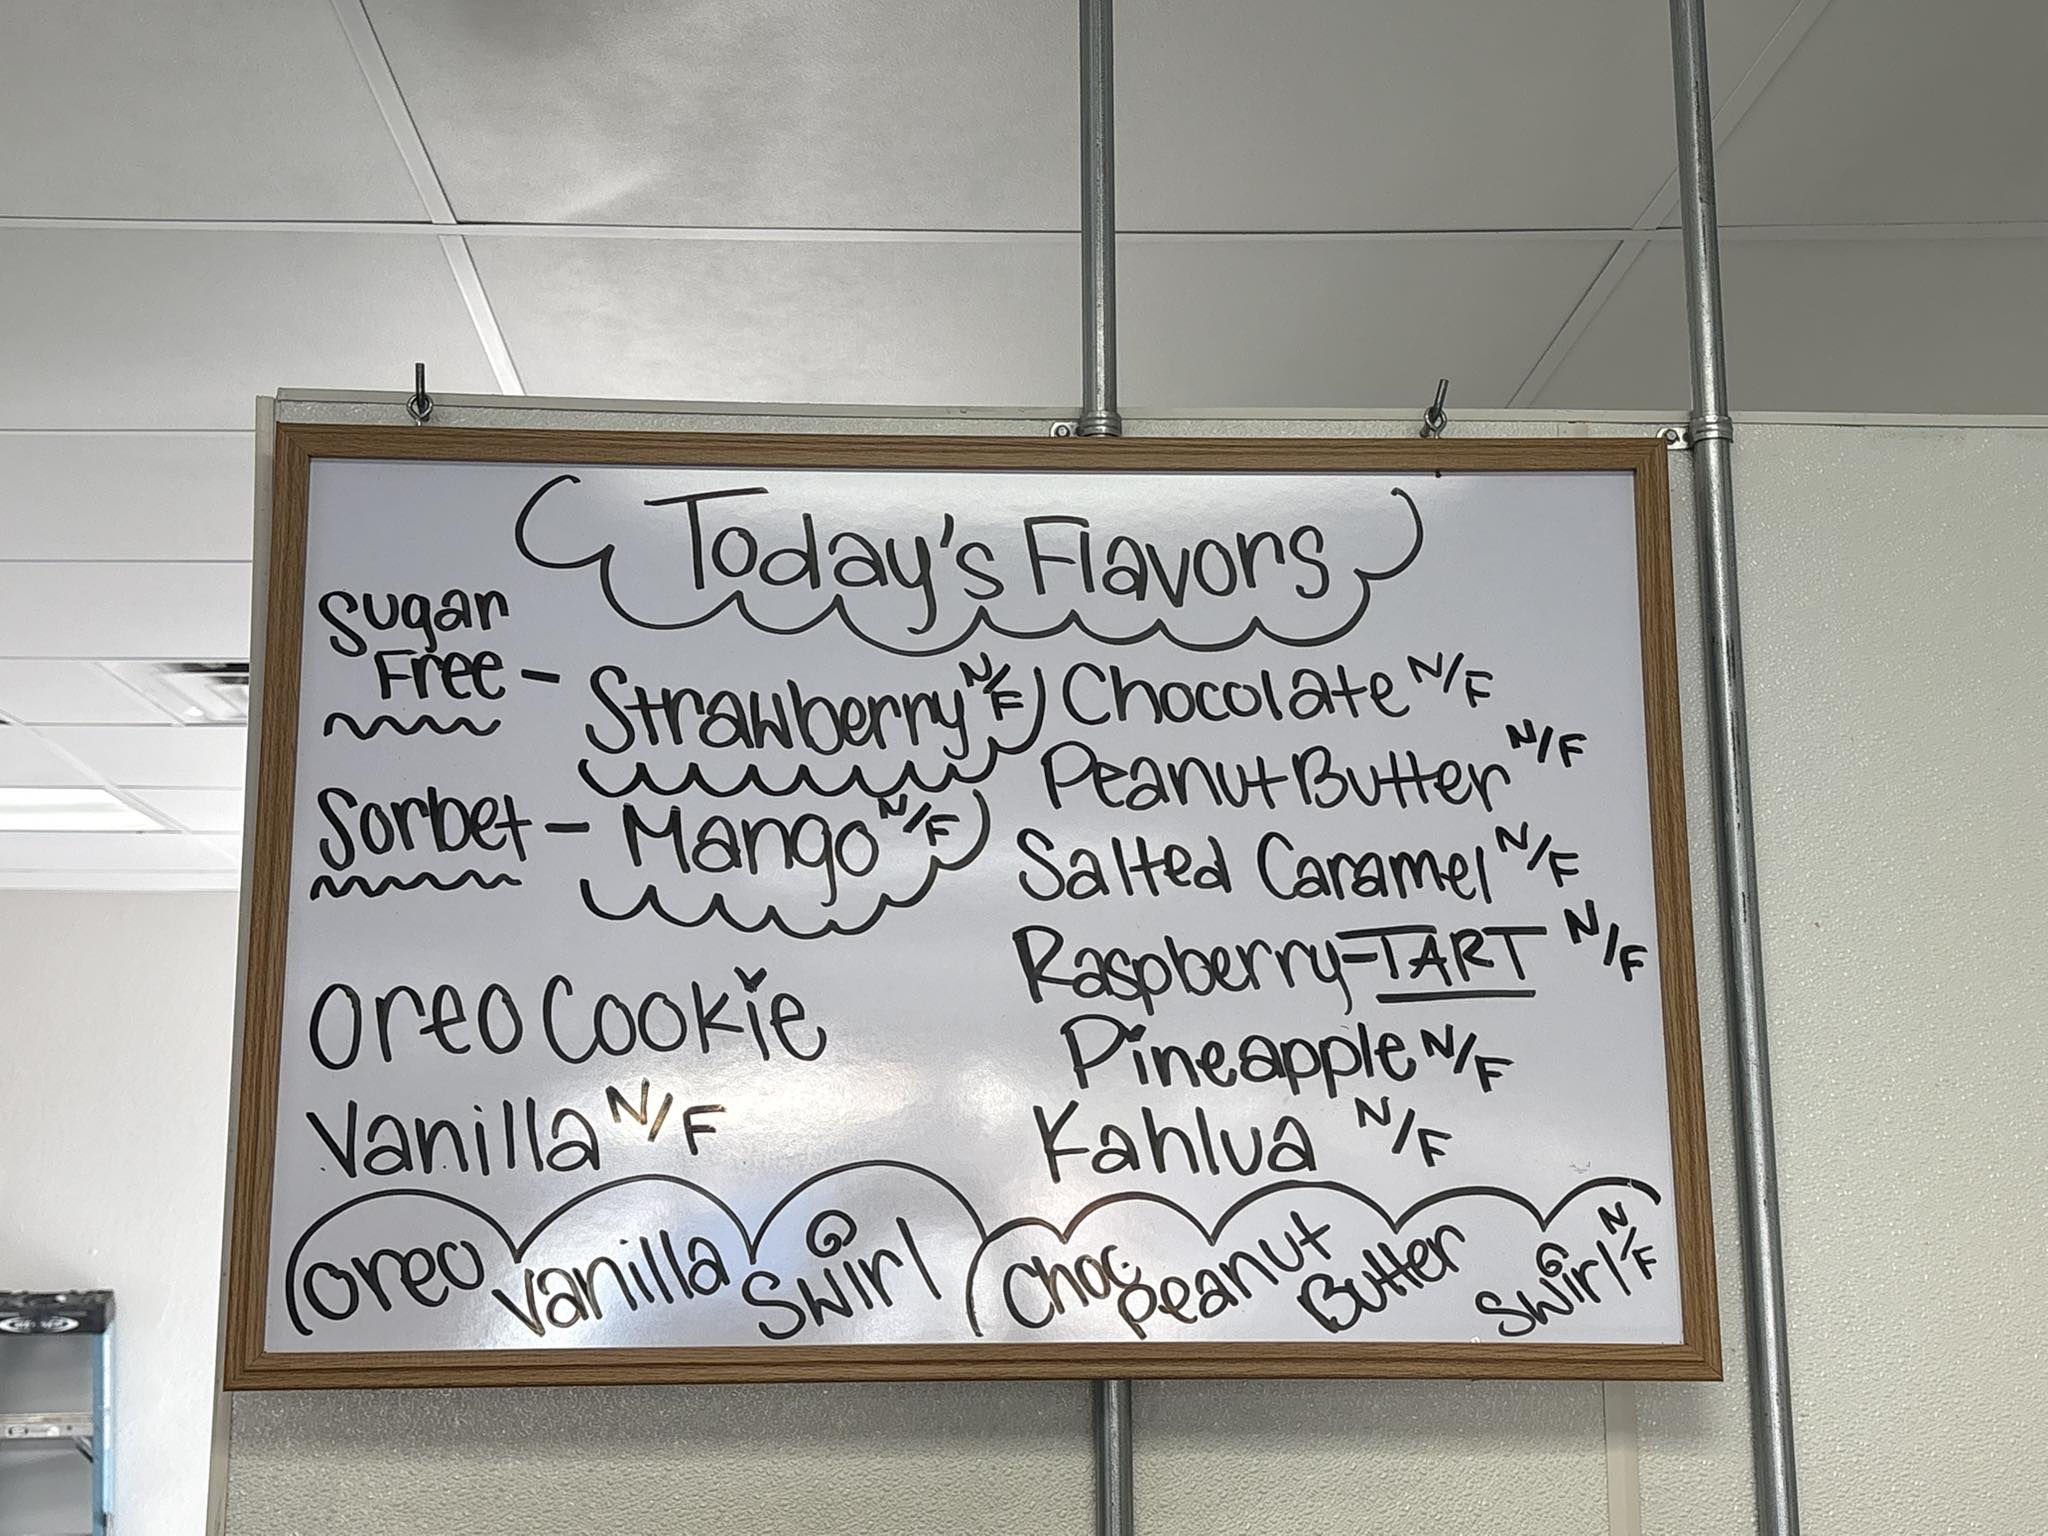 Today's Flavors
Sugar
Free - Strawberry N/F
Sorbet - Mango N/F
Oreo Cookie
Vanilla N/F
Oreo Vanilla Swirl
Chocolate N/F
Peanut Butter N/F
Salted Caramel N/F
Raspberry-TART N/F
Pineapple N/F
Kahlua N/F
Choc Peanut Butter Swirl N/F